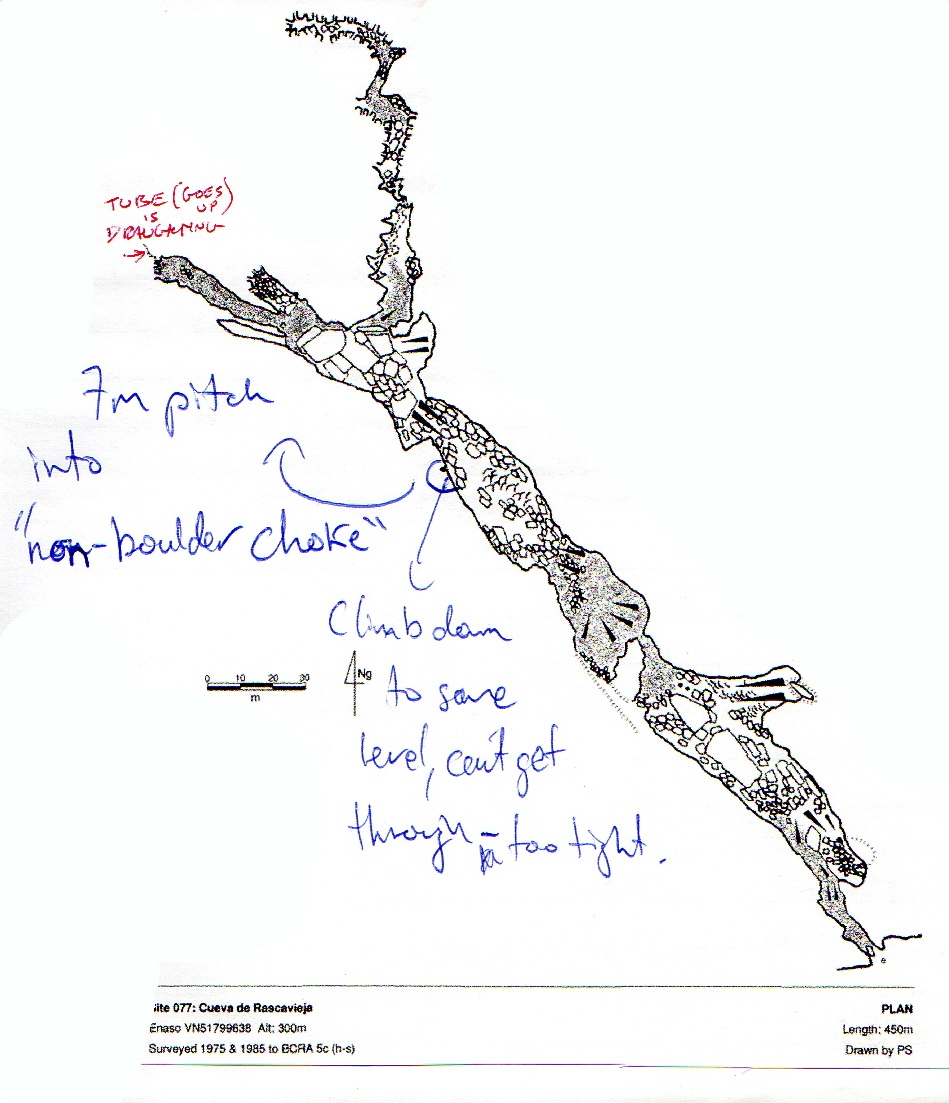 TUBE (GOES)
UP
IS
DRAUGHTING
7m pitch
into
"non-boulder choke"
Climb down
to same
level, can't get
through - too tight.
0 10 20 30
m
Ng
e
ite 077: Cueva de Rascavieja
Enaso VN51799638 Alt: 300m
Surveyed 1975 & 1985 to BCRA 5c (h-s)
PLAN
Length: 450m
Drawn by PS